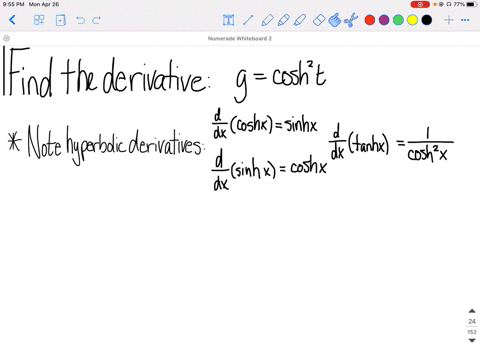 9:55 PM Mon Apr 26
77%
Numerade Whiteboard 2
Find the derivative: g = cosh²t
* Note hyperbolic derivatives: d/dx (coshx) = sinhx d/dx (tanhx) = 1/cosh²x
d/dx (sinhx) = coshx
24
153